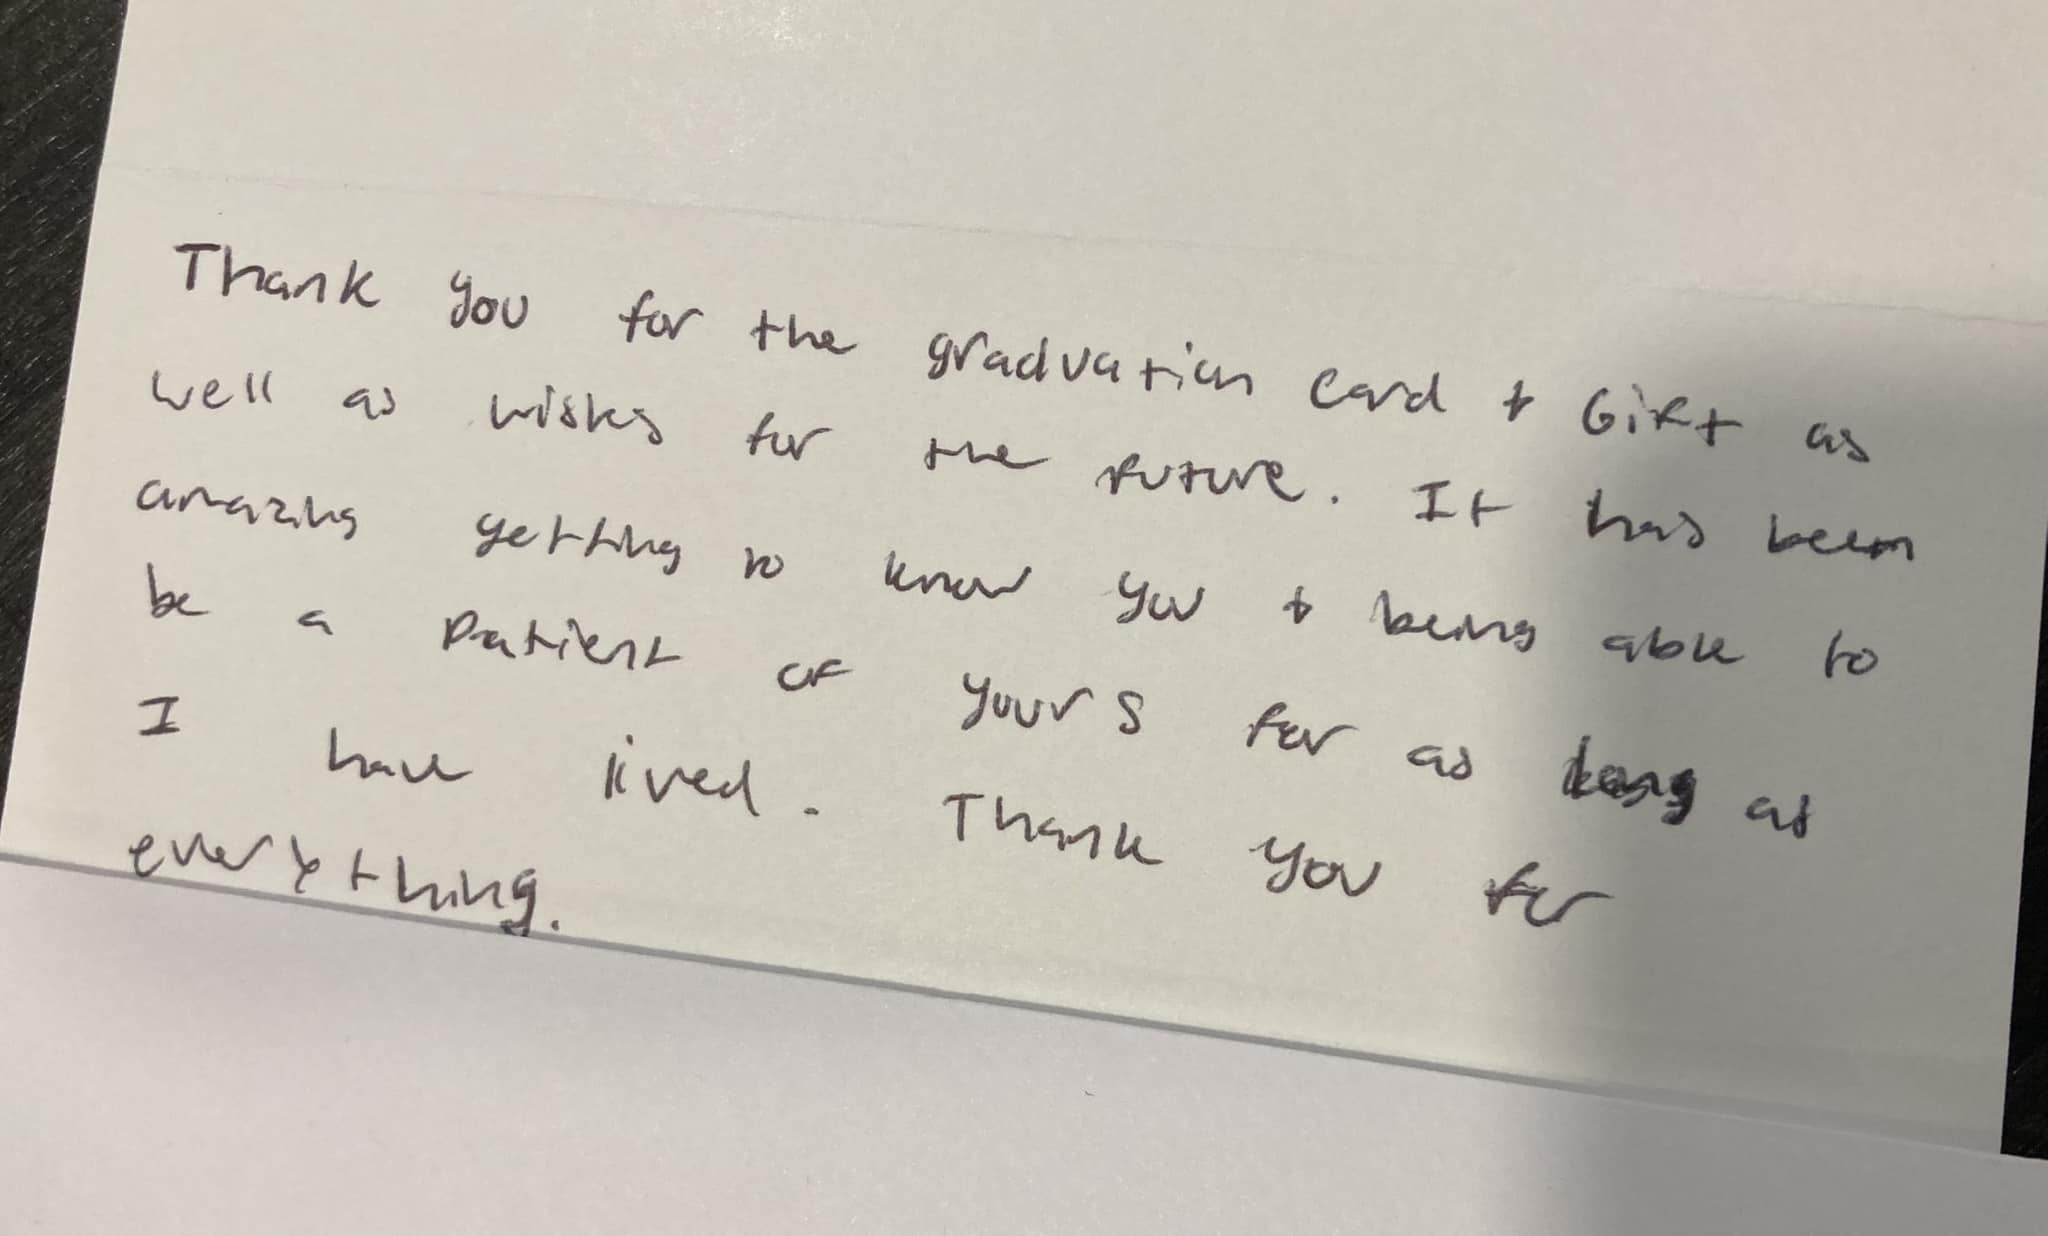 Thank you for the graduation card + Gift as
well as wishes for the future. It has been
amazing getting to know you + being able to
be a patient of yours for as long as
I have lived. Thank you for
everything.